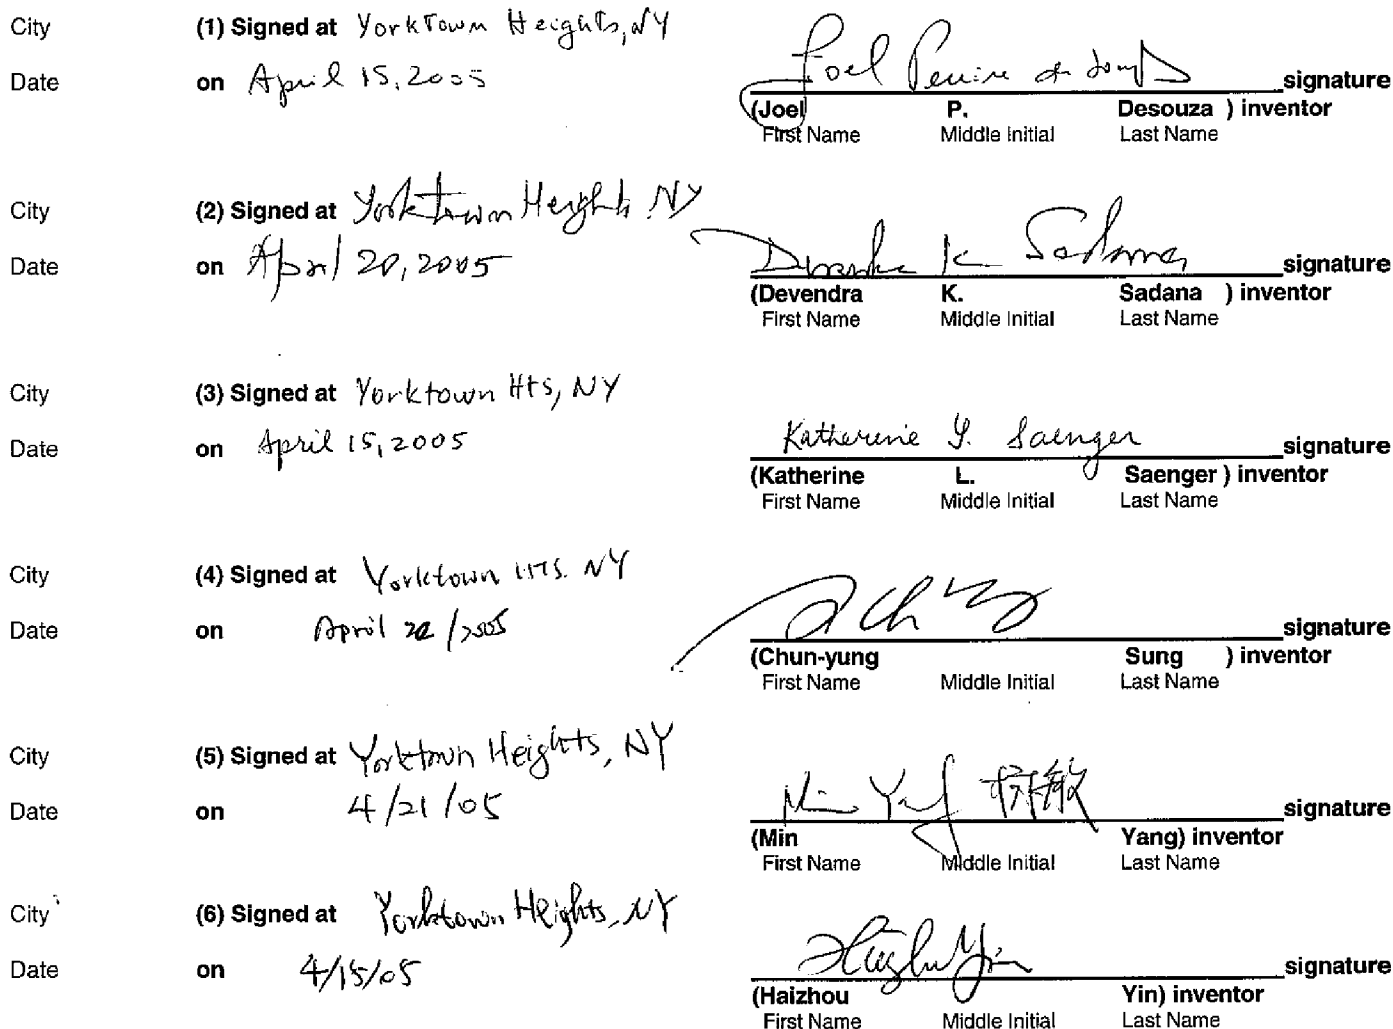 City (1) Signed at Yorktown Heights, NY
Date on April 15, 2005 Joel Pereira de Souza signature
(Joel P. Desouza ) inventor
First Name Middle Initial Last Name
City (2) Signed at Yorktown Heights NY
Date on April 20, 2005 Devendra K Sadana signature
(Devendra K. Sadana ) inventor
First Name Middle Initial Last Name
City (3) Signed at Yorktown Hts, NY
Date on April 15, 2005 Katherine L. Saenger signature
(Katherine L. Saenger ) inventor
First Name Middle Initial Last Name
City (4) Signed at Yorktown HTS. NY
Date on April /2005 signature
(Chun-yung Sung ) inventor
First Name Middle Initial Last Name
City (5) Signed at Yorktown Heights, NY
Date on 4/21/05 Min Yang 杨敏 signature
(Min Yang) inventor
First Name Middle Initial Last Name
City (6) Signed at Yorktown Heights, NY
Date on 4/15/05 Haizhou Yin signature
(Haizhou Yin) inventor
First Name Middle Initial Last Name